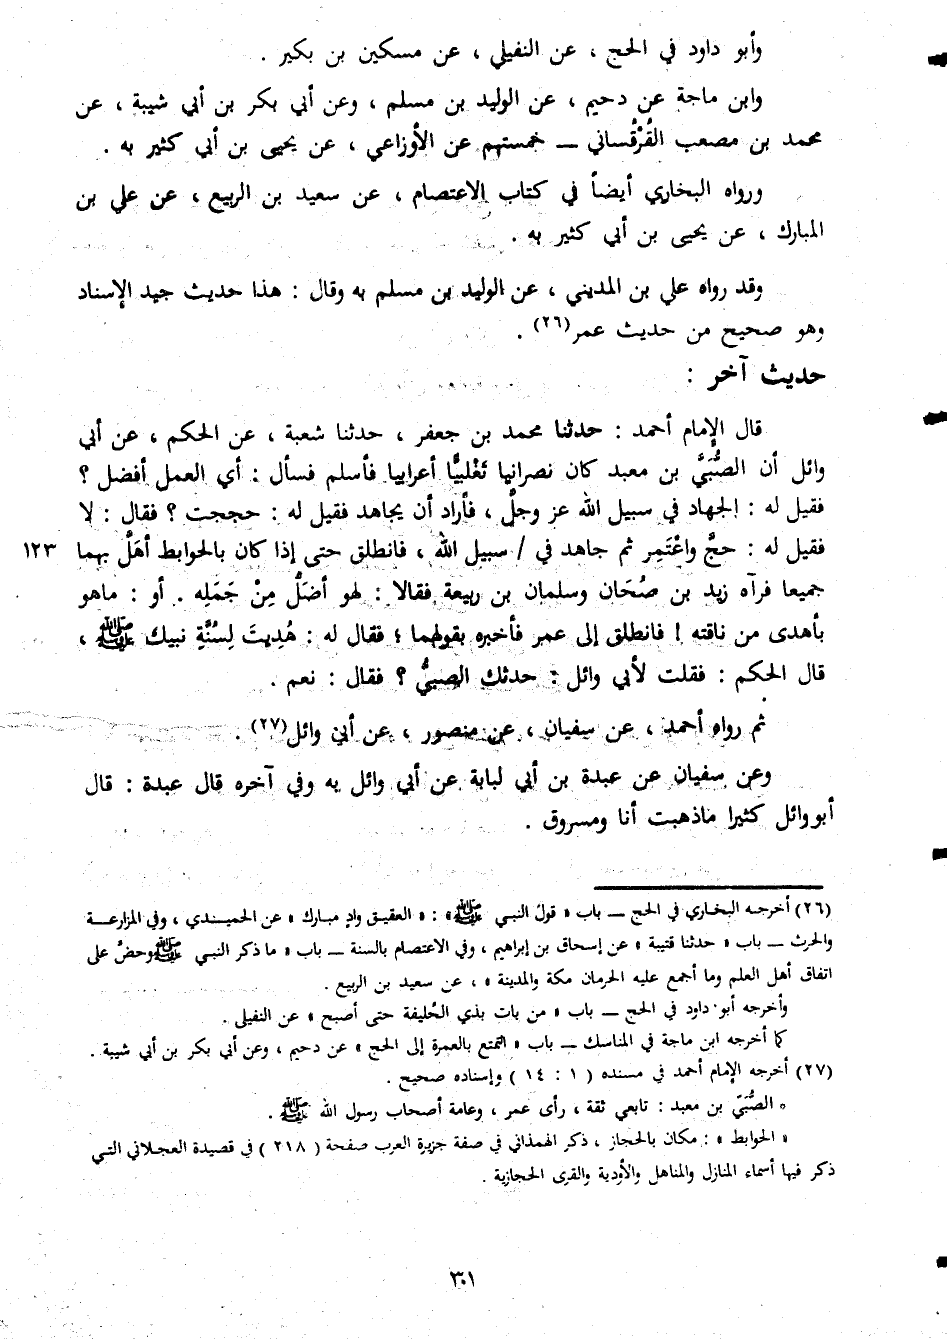 وأبو داود في الحج ، عن النفيلي ، عن مسكين بن بكير .
وابن ماجة عن دحيم ، عن الوليد بن مسلم ، وعن أبي بكر بن أبي شيبة ، عن
محمد بن مصعب القُرْقُساني ــ خمستهم عن الأوزاعي ، عن يحيى بن أبي كثير به .
ورواه البخاري أيضاً في كتاب الاعتصام ، عن سعيد بن الربيع ، عن علي بن
المبارك ، عن يحيى بن أبي كثير به .
وقد رواه علي بن المديني ، عن الوليد بن مسلم به وقال : هذا حديث جيد الإسناد
وهو صحيح من حديث عمر(٢٦) .
حديث آخر :
قال الإمام أحمد : حدثنا محمد بن جعفر ، حدثنا شعبة ، عن الحكم ، عن أبي
وائل أن الصُّبَيَّ بن معبد كان نصرانيا تَغْلبيًّا أعرابيا فأسلم فسأل : أي العمل أفضل ؟
فقيل له : الجهاد في سبيل الله عز وجلَّ ، فأراد أن يجاهد فقيل له : حججت ؟ فقال : لا
فقيل له : حجَّ واعْتَمِر ثم جاهد في / سبيل الله ، فانطلق حتى إذا كان بالحوابط أهَلَّ بهما ١٢٣
جميعا فرآه زيد بن صُحَان وسلمان بن ربيعة فقالا : لهو أضَلُّ مِنْ جَمَلِه . أو : ماهو
بأهدى من ناقته ! فانطلق إلى عمر فأخبره بقولهما ؛ فقال له : هُدِيتَ لِسُنَّةِ نبيك ﷺ ،
قال الحكم : فقلت لأبي وائل : حدثك الصبيُّ ؟ فقال : نعم .
ثم رواه أحمد ، عن سفيان ، عن منصور ، عن أبي وائل(٢٧) .
وعن سفيان عن عبدة بن أبي لبابة عن أبي وائل به وفي آخره قال عبدة : قال
أبو وائل كثيرا ماذهبت أنا ومسروق .
(٢٦) أخرجـه البخـاري في الحج ــ باب « قول النبي ﷺ » : « العقيـق وادٍ مبارك » عن الحميـدي ، وفي المزارعـة
والحرث ــ باب « حدثنا قتيبة » عن إسحاق بن إبراهيم ، وفي الاعتصام بالسنة ــ باب « ما ذكر النبي ﷺ وحضَّ على
اتفاق أهل العلم وما أجمع عليه الحرمان مكة والمدينة » ، عن سعيد بن الربيع .
وأخرجه أبو داود في الحج ــ باب « من بات بذي الحُليفة حتى أصبح » عن النفيلى .
كما أخرجه ابن ماجة في المناسك ــ باب « التمتع بالعمرة إلى الحج » عن دحيم ، وعن أبي بكر بن أبي شيبة .
(٢٧) أخرجه الإمام أحمد في مسنده ( ١ : ١٤ ) وإسناده صحيح .
* الصُّبَيّ بن معبد : تابعي ثقة ، رأى عمر ، وعامة أصحاب رسول الله ﷺ .
« الحوابط » : مكان بالحجاز ، ذكر الهمذاني في صفة جزيرة العرب صفحة ( ٢١٨ ) في قصيدة العجلاني التي
ذكر فيها أسماء المنازل والمناهل والأودية والقرى الحجازية .
٣٠١